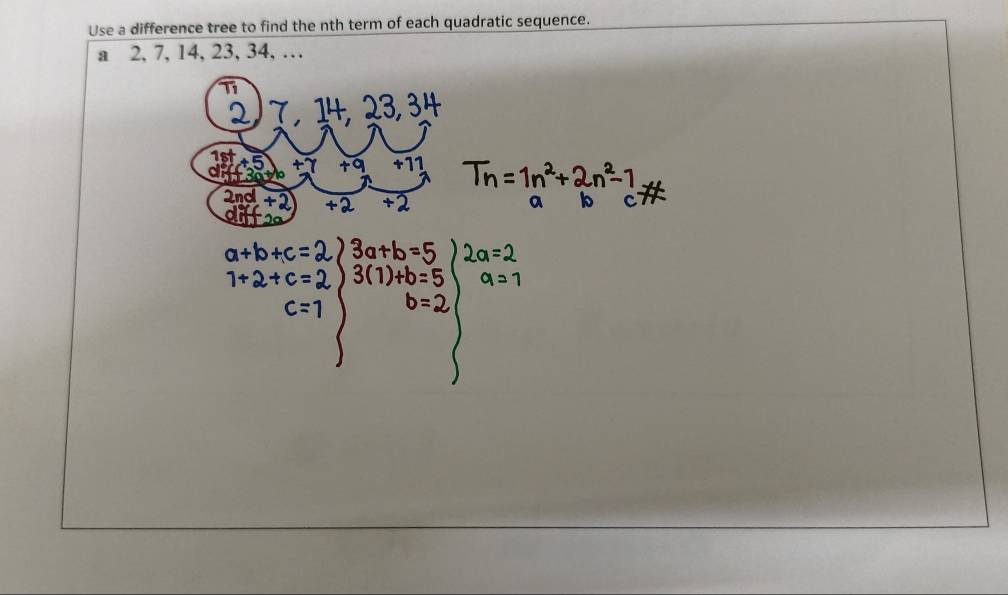 Use a difference tree to find the nth term of each quadratic sequence.
a 2, 7, 14, 23, 34, …
T1
2, 7, 14, 23, 34
1st diff +5 3a+b +7 +9 +11
2nd diff +2 2a +2 +2
Tn = 1n²+2n²-1 #
a b c
a+b+c=2 3a+b=5 2a=2
1+2+c=2 3(1)+b=5 a=1
c=1 b=2